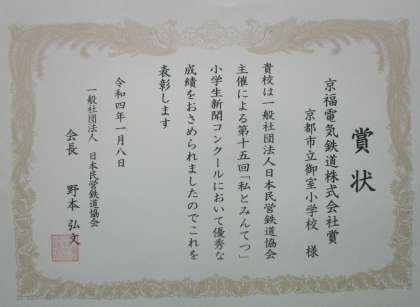 賞状
京福電気鉄道株式会社賞
京都市立御室小学校 様
貴校は一般社団法人日本民営鉄道協会
主催による第十五回「私とみんてつ」
小学生新聞コンクールにおいて優秀な
成績をおさめられましたのでこれを
表彰します
令和四年一月八日
一般社団法人 日本民営鉄道協会
会長 野本 弘文